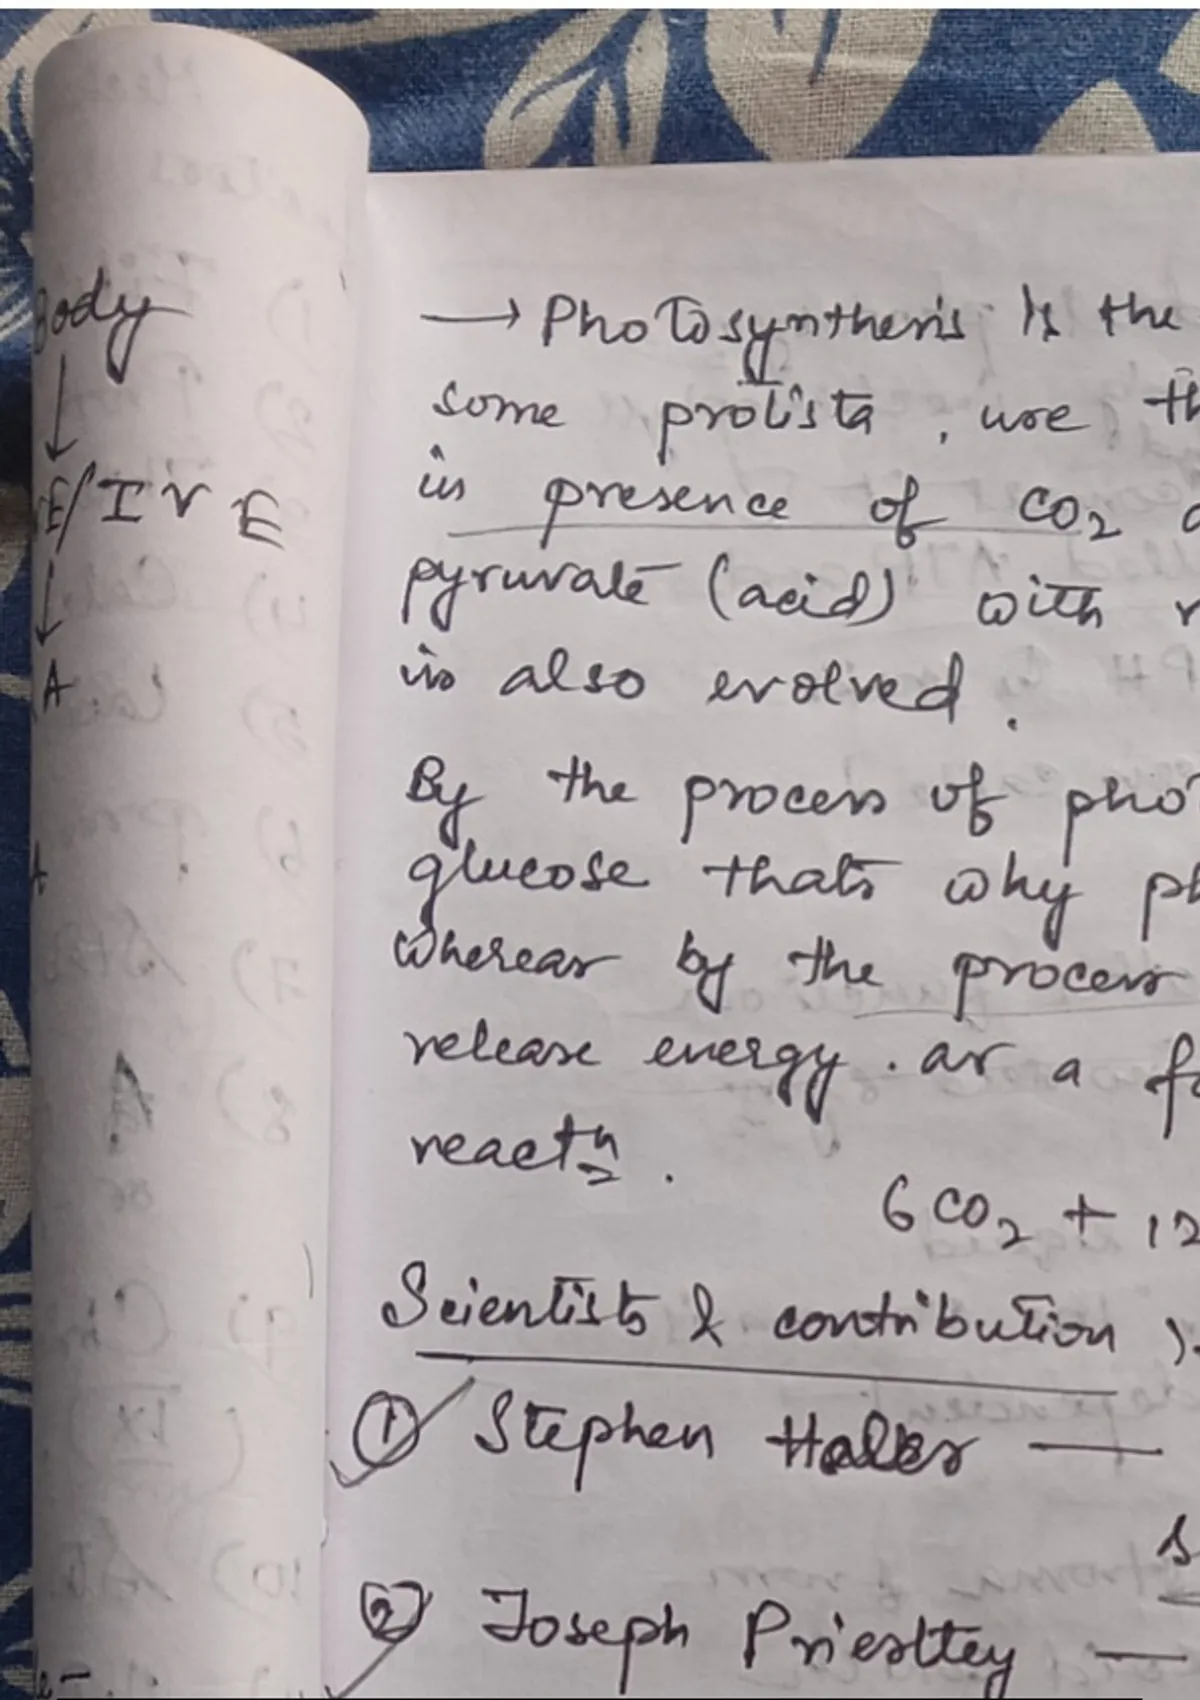 Body
↓
E/IVE
↓
A
→ Photosynthesis is the
some protista, use th
in presence of CO2
pyruvate (acid) with r
is also evolved.
By the process of phot
glucose thats why ph
Whereas by the process
release energy. as a fo
reactn.
6CO2 + 12
Scientists & contribution :-
① Stephen Hales —
s
② Joseph Priesttey —